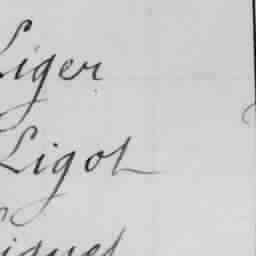 Liger
Ligot